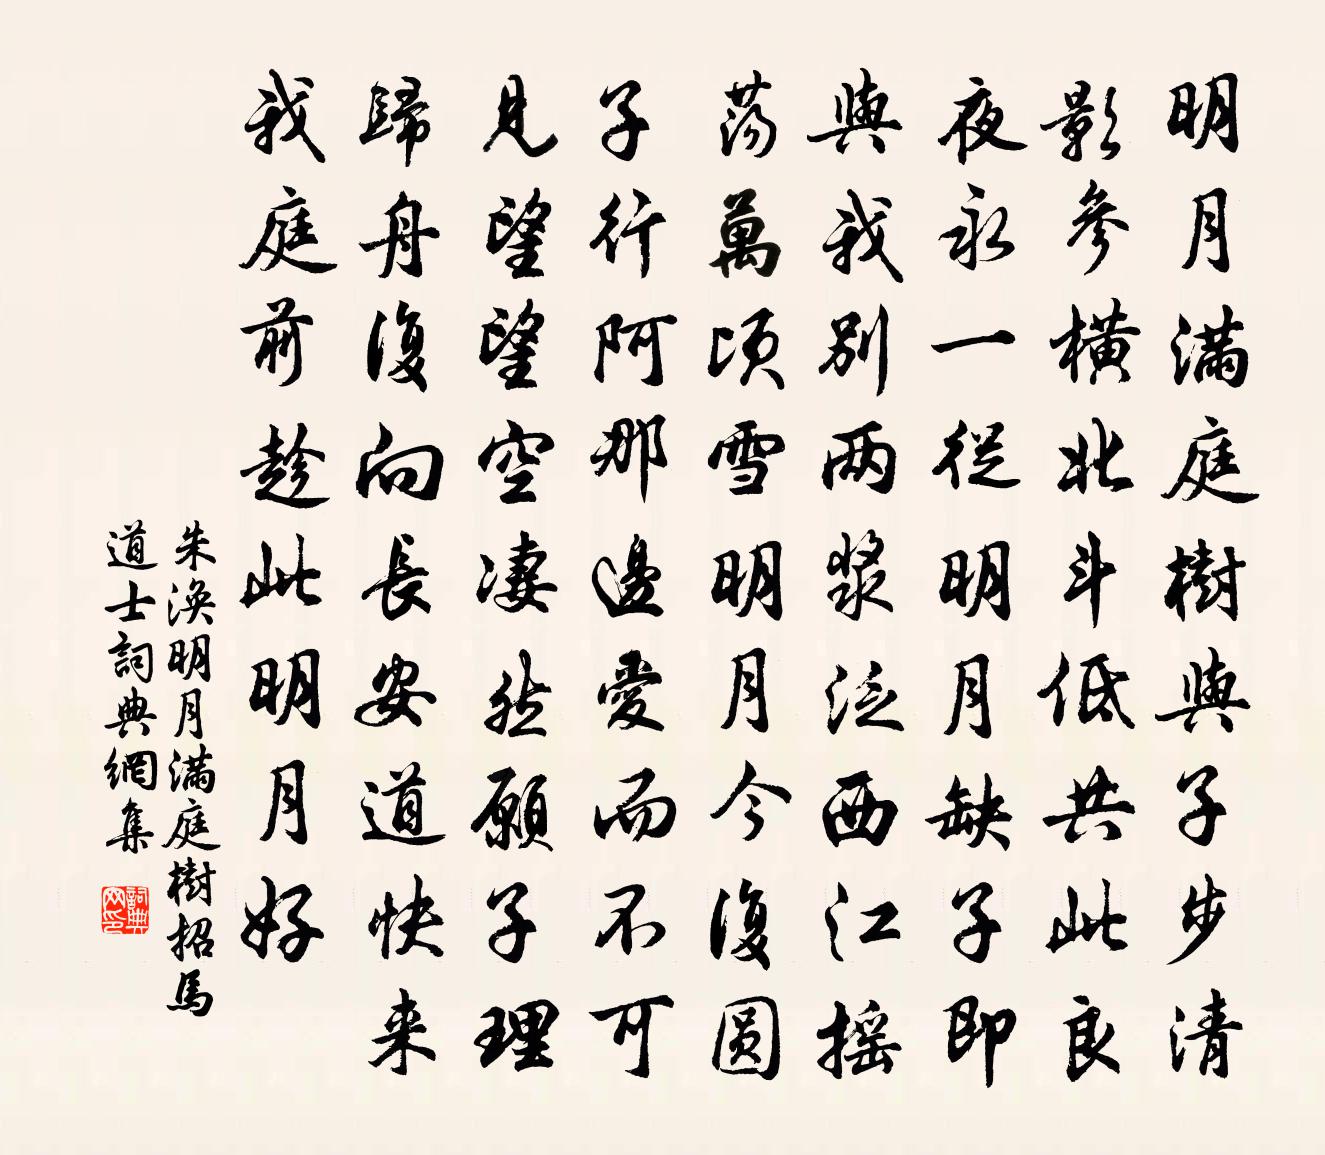 明月滿庭樹與子步清
影參橫北斗低共此良
夜永一從明月缺子即
與我別兩漿泛西江搖
蕩萬頃雪明月今復圓
子行阿那邊愛而不可
見望望空凄然願子理
歸舟復向長安道快来
我庭前趁此明月好
朱渙明月滿庭樹招馬
道士詞典網集
詞典
网印